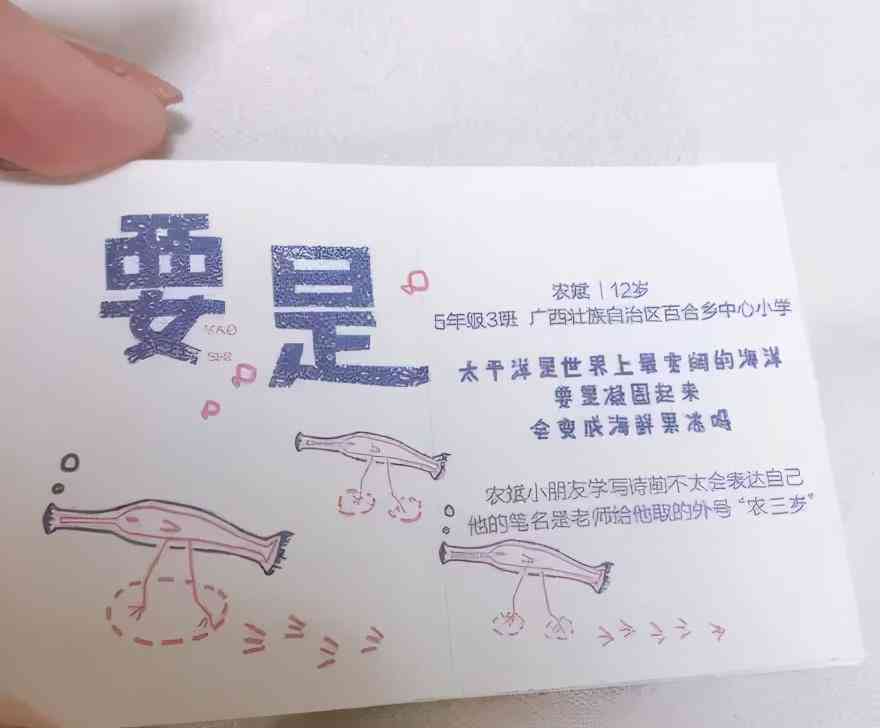 要是
农斌｜12岁
5年级3班 广西壮族自治区百合乡中心小学
太平洋是世界上最宽阔的海洋
要是凝固起来
会变成海鲜果冻吗
农斌小朋友学写诗前不太会表达自己
他的笔名是老师给他取的外号“农三岁”